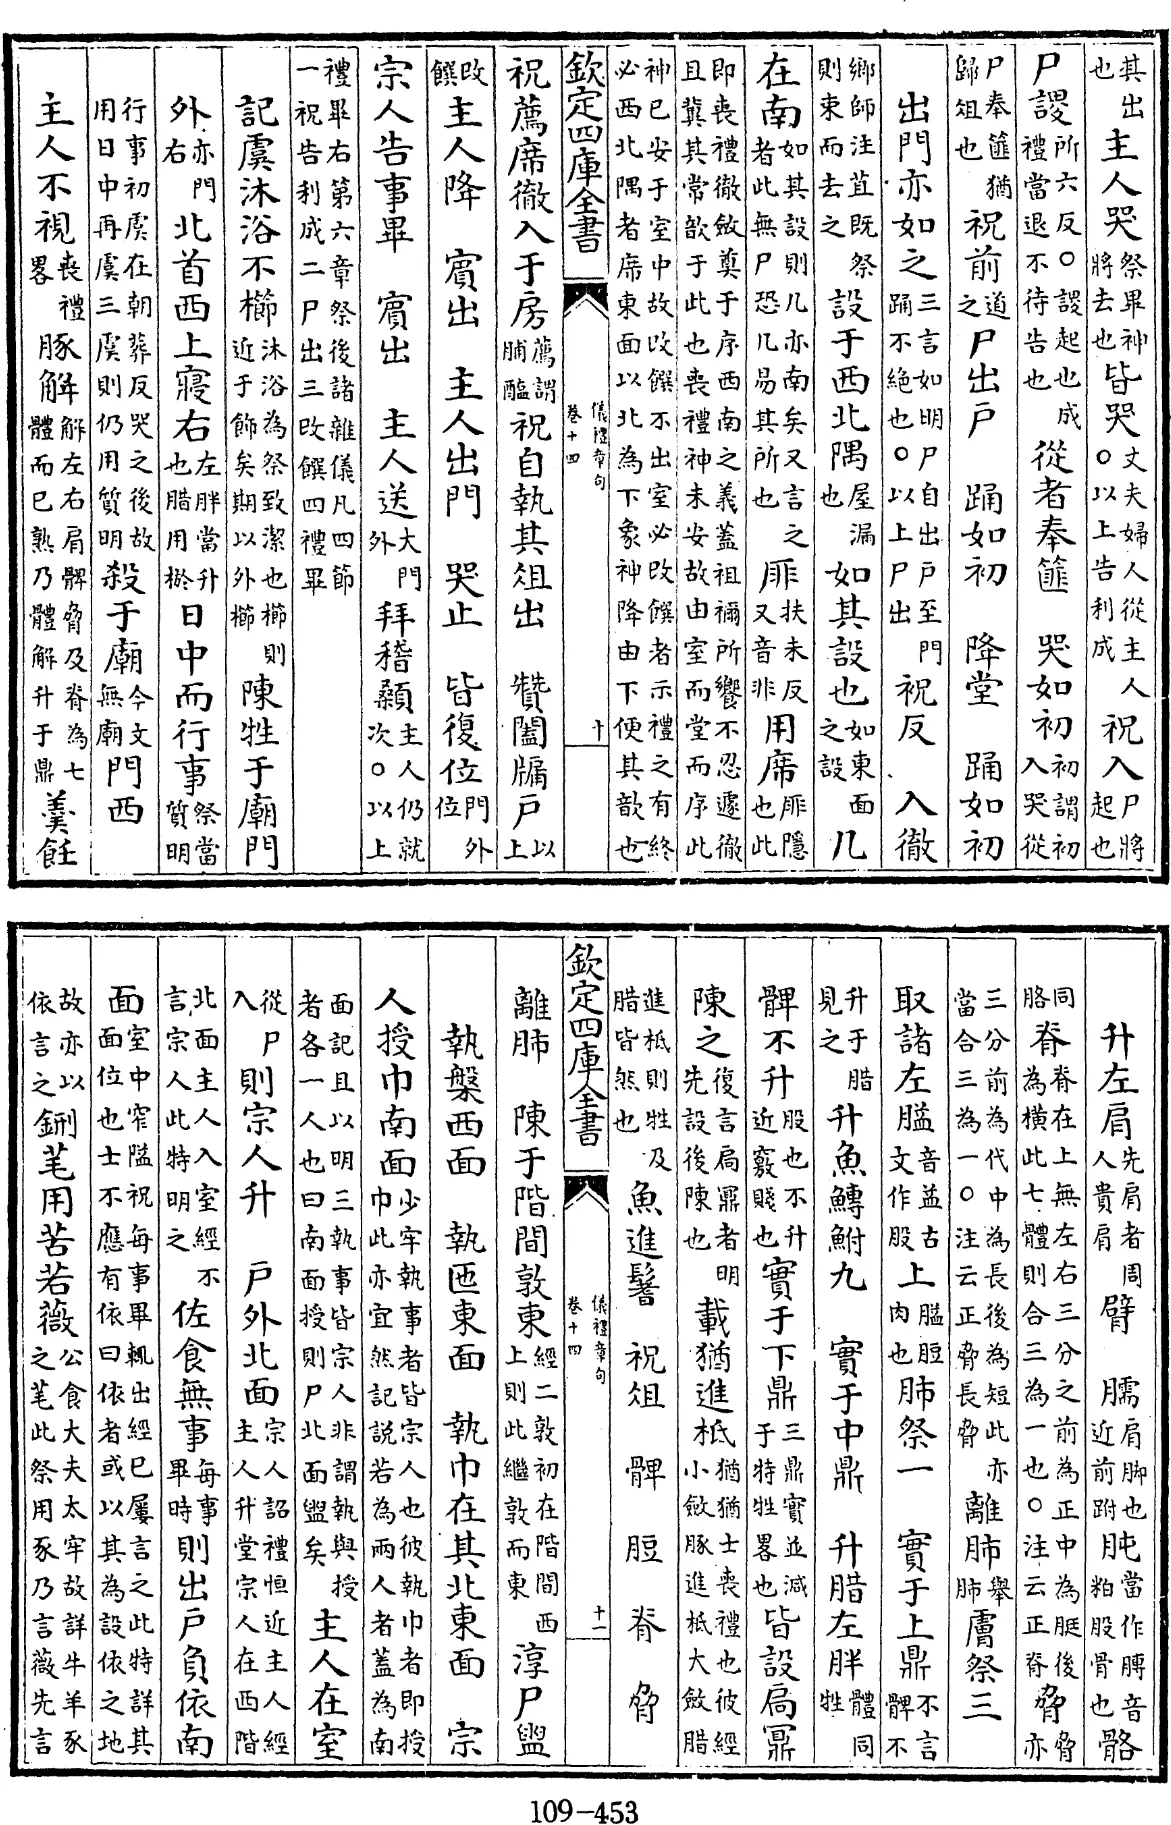 其出也主人哭祭畢神將去也皆哭丈夫婦人從主人○以上告利成祝入尸將起也
尸謖所六反○謖起也成禮當退不待告也從者奉篚哭如初初謂初入哭從
尸奉篚猶歸俎也祝前道之尸出戶踊如初降堂踊如初
出門亦如之三言如明尸自出戶至門踊不絶也○以上尸出祝反入徹
鄉師注苴既祭則束而去之設于西北隅屋漏也如其設也如東面之設几
在南如其設則几亦南矣又言之者此無尸恐几易其所也厞扶未反又音非用席厞隱也此
即喪禮徹斂奠于序西南之義蓋祖禰所饗不忍遽徹且冀其常歆于此也喪禮神未安故由室而堂而序此
神已安于室中故改饌不出室必改饌者示禮之有終必西北隅者席東面以北為下象神降由下便其歆也
欽定四庫全書
儀禮章句
卷十四
十
祝薦席徹入于房薦謂脯醢祝自執其俎出贊闔牖戶以上
改饌主人降賓出主人出門哭止皆復位門外位
宗人告事畢賓出主人送大門外拜稽顙主人仍就次○以上
禮畢右第六章祭後諸雜儀凡四節一祝告利成二尸出三改饌四禮畢
記虞沐浴不櫛沐浴為祭致潔也櫛則近于飾矣期以外櫛陳牲于廟門
外亦門右北首西上寢右左胖當升也腊用棜日中而行事祭當質明
行事初虞在朝葬反哭之後故用日中再虞三虞則仍用質明殺于廟今文無廟門西
主人不視喪禮畧豚解解左右肩髀脅及脊為七體而已熟乃體解升于鼎羹飪
升左肩先肩者周人貴肩臂臑肩脚也近前跗肫當作膞音粕股骨也骼
同胳脊脊在上無左右三分之前為正中為脡後為橫此七體則合三為一也○注云正脊脅脅亦
三分前為代中為長後為短此亦當合三為一○注云正脅長脅離肺舉肺膚祭三
取諸左膉音益古文作股上膉脰肉也肺祭一實于上鼎不言髀不
升于腊見之升魚鱄鮒九實于中鼎升腊左胖體同牲
髀不升股也不升近竅賤也實于下鼎三鼎實並減于特牲畧也皆設扃鼏
陳之復言扃鼏者明先設後陳也載猶進柢猶猶士喪禮也彼經小斂豚進柢大斂腊
進柢則牲及腊皆然也魚進鬐祝俎髀脰脊脅
欽定四庫全書
儀禮章句
卷十四
十一
離肺陳于階間敦東經二敦初在階間西上則此繼敦而東淳尸盥
執槃西面執匜東面執巾在其北東面宗
人授巾南面少牢執事者皆宗人也彼執巾者即授巾此亦宜然記說若為兩人者蓋為南
面記且以明三執事皆宗人非謂執與授者各一人也曰南面授則尸北面盥矣主人在室
從尸入則宗人升戶外北面宗人詔禮恒近主人經主人升堂宗人在西階
北面主人入室經不言宗人此特明之佐食無事每事畢時則出戶負依南
面室中窄隘祝每事畢輒出經已屢言之此特詳其面位也士不應有依曰依者或以其為設依之地
故亦以依言之鉶芼用苦若薇公食大夫太牢故詳牛羊豕之芼此祭用豕乃言薇先言
109-453